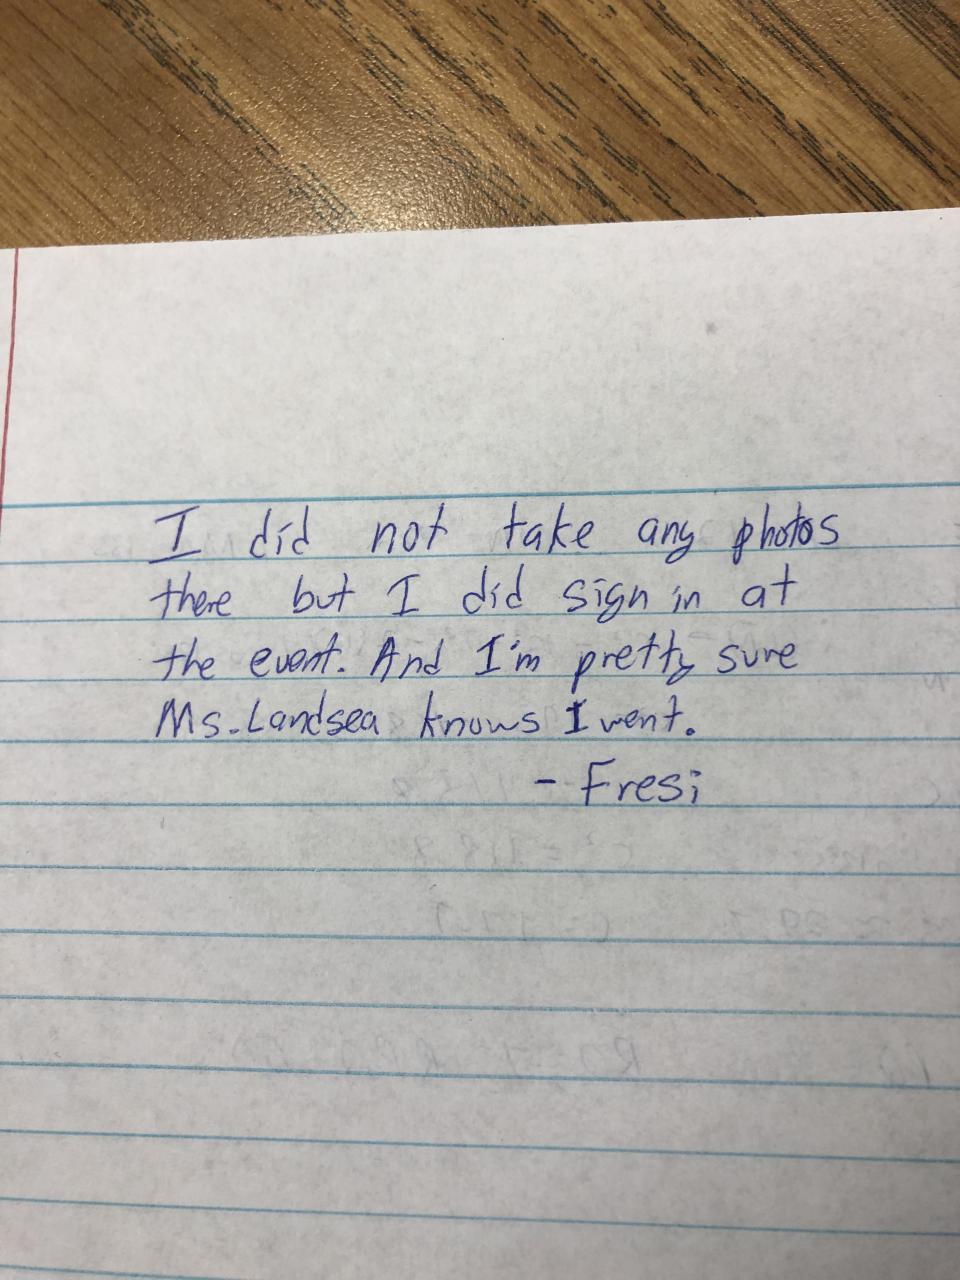 I did not take any photos
there but I did sign in at
the event. And I'm pretty sure
Ms. Landsea knows I went.
- Fresi